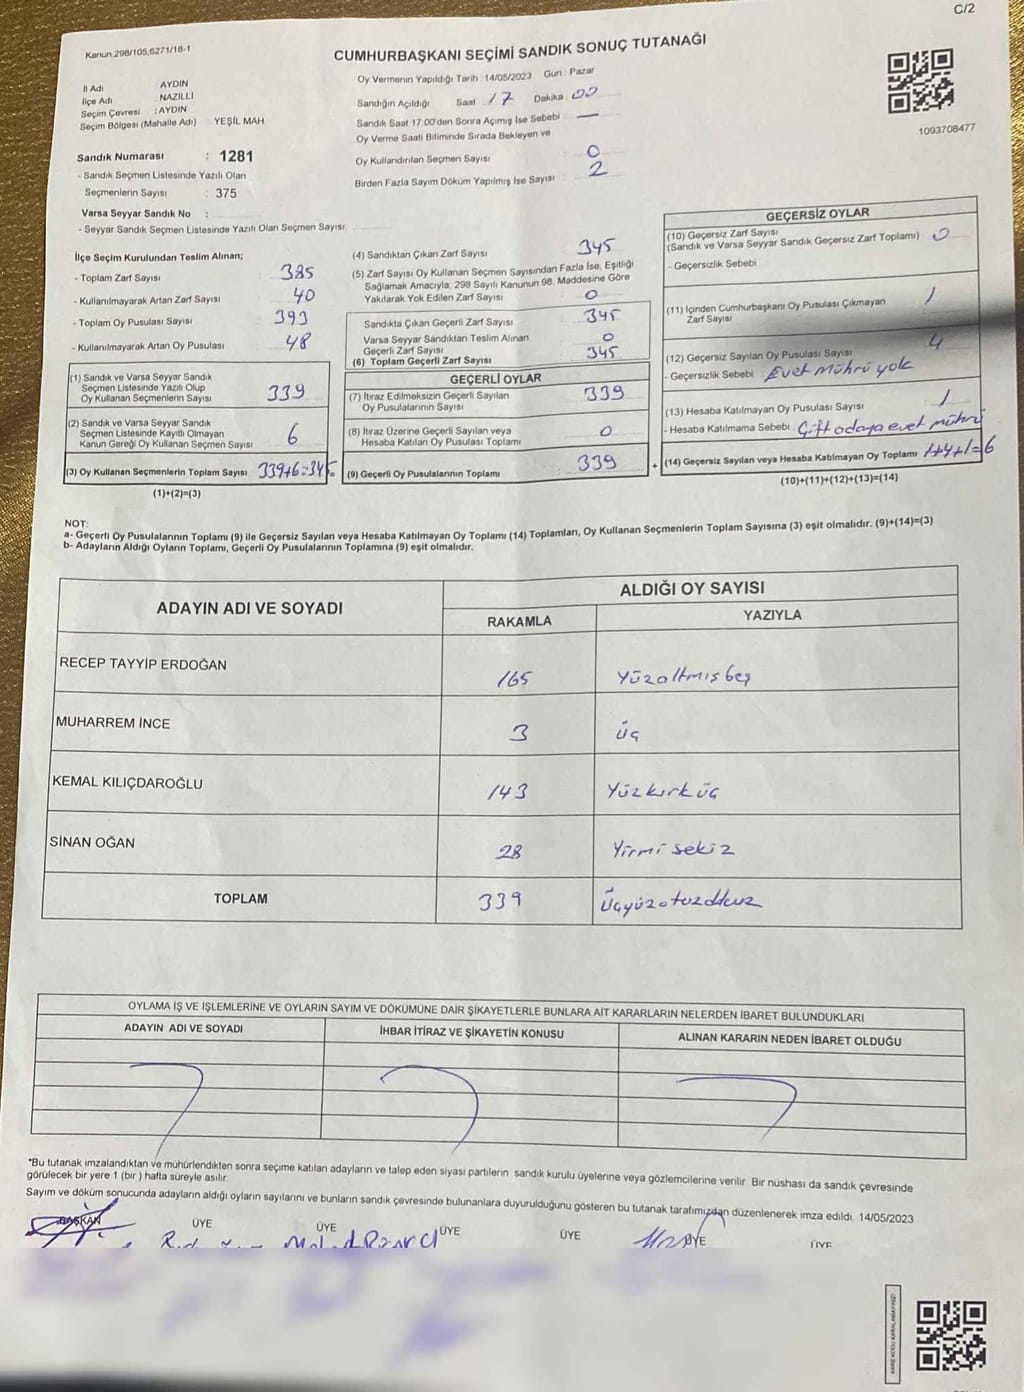 C/2
Kanun:298/105,6271/18-1
CUMHURBAŞKANI SEÇİMİ SANDIK SONUÇ TUTANAĞI
1093708477
İl Adı : AYDIN
İlçe Adı : NAZİLLİ
Seçim Çevresi : AYDIN
Seçim Bölgesi (Mahalle Adı) YEŞİL MAH
Sandık Numarası : 1281
- Sandık Seçmen Listesinde Yazılı Olan
Seçmenlerin Sayısı : 375
Varsa Seyyar Sandık No :
- Seyyar Sandık Seçmen Listesinde Yazılı Olan Seçmen Sayısı:
Oy Vermenin Yapıldığı Tarih : 14/05/2023 Gün : Pazar
Sandığın Açıldığı Saat 17 Dakika 00
Sandık Saat 17:00'den Sonra Açımış İse Sebebi : —
Oy Verme Saati Bitiminde Sırada Bekleyen ve
Oy Kullandırılan Seçmen Sayısı 0
Birden Fazla Sayım Döküm Yapılmış İse Sayısı : 2
İlçe Seçim Kurulundan Teslim Alınan;
- Toplam Zarf Sayısı : 385
- Kullanılmayarak Artan Zarf Sayısı : 40
- Toplam Oy Pusulası Sayısı : 393
- Kullanılmayarak Artan Oy Pusulası : 48
(1) Sandık ve Varsa Seyyar Sandık
Seçmen Listesinde Yazılı Olup
Oy Kullanan Seçmenlerin Sayısı : 339
(2) Sandık ve Varsa Seyyar Sandık
Seçmen Listesinde Kayıtlı Olmayan
Kanun Gereği Oy Kullanan Seçmen Sayısı : 6
(3) Oy Kullanan Seçmenlerin Toplam Sayısı 339+6=345
(1)+(2)=(3)
(4) Sandıktan Çıkan Zarf Sayısı : 345
(5) Zarf Sayısı Oy Kullanan Seçmen Sayısından Fazla İse, Eşitliği
Sağlamak Amacıyla, 298 Sayılı Kanunun 98. Maddesine Göre
Yakılarak Yok Edilen Zarf Sayısı : 0
Sandıkta Çıkan Geçerli Zarf Sayısı : 345
Varsa Seyyar Sandıktan Teslim Alınan
Geçerli Zarf Sayısı : 0
(6) Toplam Geçerli Zarf Sayısı : 345
GEÇERLİ OYLAR
(7) İtiraz Edilmeksizin Geçerli Sayılan
Oy Pusulalarının Sayısı : 339
(8) İtiraz Üzerine Geçerli Sayılan veya
Hesaba Katılan Oy Pusulası Toplamı : 0
(9) Geçerli Oy Pusulalarının Toplamı : 339
+
GEÇERSİZ OYLAR
(10) Geçersiz Zarf Sayısı
(Sandık ve Varsa Seyyar Sandık Geçersiz Zarf Toplamı) : 0
- Geçersizlik Sebebi :
(11) İçinden Cumhurbaşkanı Oy Pusulası Çıkmayan
Zarf Sayısı : 1
(12) Geçersiz Sayılan Oy Pusulası Sayısı : 4
- Geçersizlik Sebebi : Evet mührü yok
(13) Hesaba Katılmayan Oy Pusulası Sayısı : 1
- Hesaba Katılmama Sebebi : Çift adaya evet mührü
(14) Geçersiz Sayılan veya Hesaba Katılmayan Oy Toplamı : 1+4+1=6
(10)+(11)+(12)+(13)=(14)
NOT:
a- Geçerli Oy Pusulalarının Toplamı (9) ile Geçersiz Sayılan veya Hesaba Katılmayan Oy Toplamı (14) Toplamları, Oy Kullanan Seçmenlerin Toplam Sayısına (3) eşit olmalıdır. (9)+(14)=(3)
b- Adayların Aldığı Oyların Toplamı, Geçerli Oy Pusulalarının Toplamına (9) eşit olmalıdır.
ADAYIN ADI VE SOYADI
ALDIĞI OY SAYISI
RAKAMLA YAZIYLA
RECEP TAYYİP ERDOĞAN 165 Yüzaltmışbeş
MUHARREM İNCE 3 üç
KEMAL KILIÇDAROĞLU 143 Yüzkırk üç
SİNAN OĞAN 28 Yirmi sekiz
TOPLAM 339 Üçyüzotuzdokuz
OYLAMA İŞ VE İŞLEMLERİNE VE OYLARIN SAYIM VE DÖKÜMÜNE DAİR ŞİKAYETLERLE BUNLARA AİT KARARLARIN NELERDEN İBARET BULUNDUKLARI
ADAYIN ADI VE SOYADI İHBAR İTİRAZ VE ŞİKAYETİN KONUSU ALINAN KARARIN NEDEN İBARET OLDUĞU
*Bu tutanak imzalandıktan ve mühürlendikten sonra seçime katılan adayların ve talep eden siyasi partilerin sandık kurulu üyelerine veya gözlemcilerine verilir. Bir nüshası da sandık çevresinde
görülecek bir yere 1 (bir ) hafta süreyle asılır.
Sayım ve döküm sonucunda adayların aldığı oyların sayılarını ve bunların sandık çevresinde bulunanlara duyurulduğunu gösteren bu tutanak tarafımızdan düzenlenerek imza edildi. 14/05/2023
BAŞKAN ÜYE ÜYE ÜYE ÜYE ÜYE ÜYE